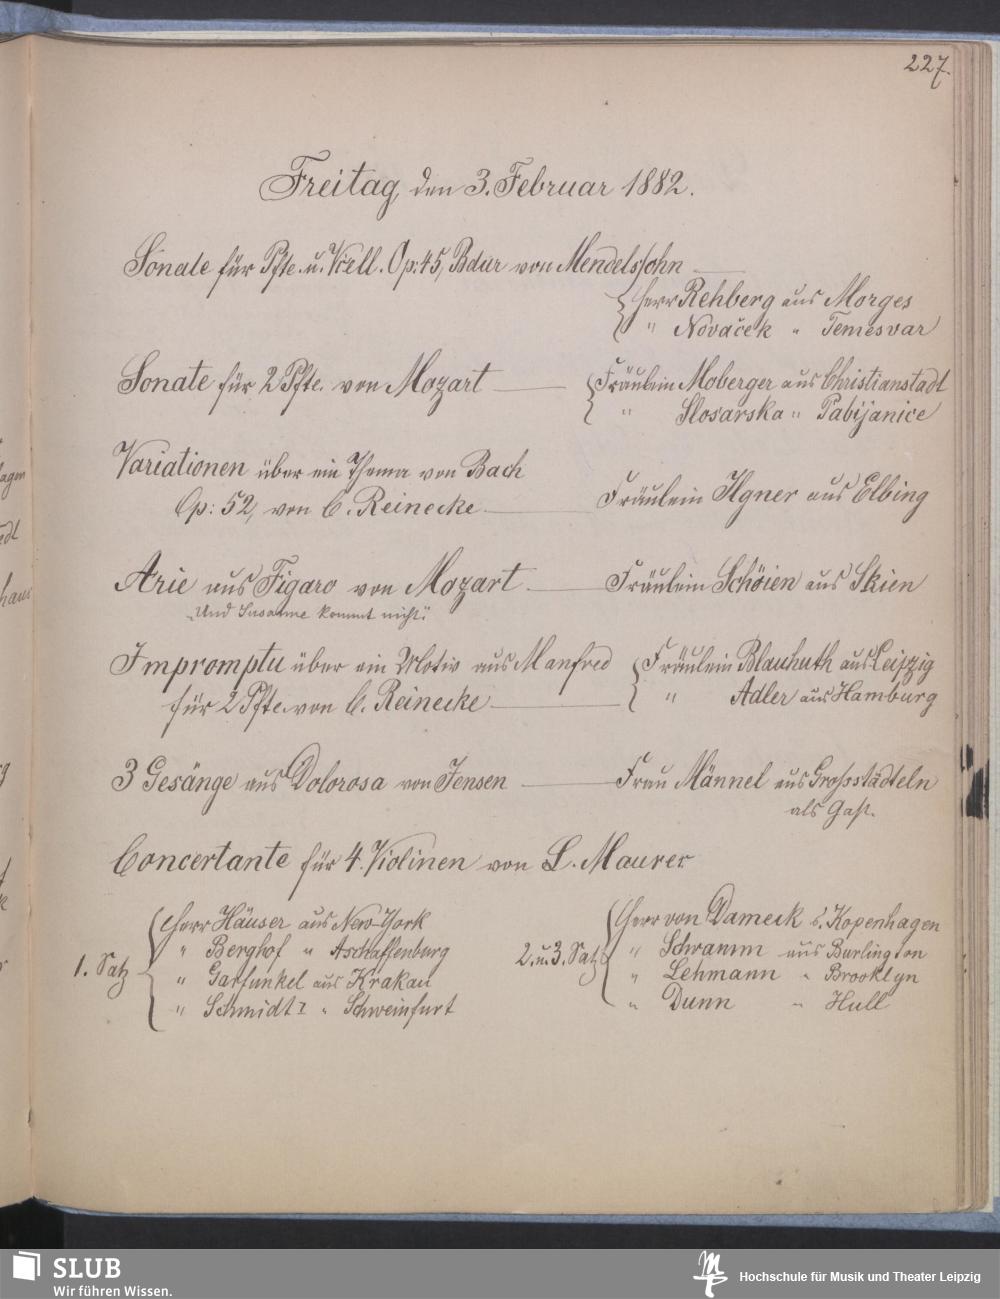 227.
Freitag, den 3. Februar 1882.
Sonate für Pfte. u. Vcell. Op: 45, Bdur von Mendelssohn
Herr Rehberg aus Morges
" Nováček " Temesvar
Sonate für 2 Pfte. von Mozart
Fräulein Moberger aus Christianstadt
" Slosarska " Pabijanice
Variationen über ein Thema von Bach
Op: 52, von C. Reinecke
Fräulein Ilgner aus Elbing
Arie aus Figaro von Mozart
Fräulein Schöien aus Skien
"Und Susanne kommt nicht."
Impromptu über ein Motiv aus Manfred
Fräulein Blauhuth aus Leipzig
für 2 Pfte. von C. Reinecke
" Adler aus Hamburg
3 Gesänge aus Dolorosa von Jensen
Frau Männel aus Grossstädteln
als Gast.
Concertante für 4 Violinen von L. Maurer
1. Satz
Herr Häuser aus New-York
" Berghof " Aschaffenburg
" Garfunkel aus Krakau
" Schmidt I " Schweinfurt
2. u. 3. Satz
Herr von Dameck a. Kopenhagen
" Schramm aus Burlington
" Lehmann " Brooklyn
" Dunn " Hull
SLUB
Wir führen Wissen.
Hochschule für Musik und Theater Leipzig